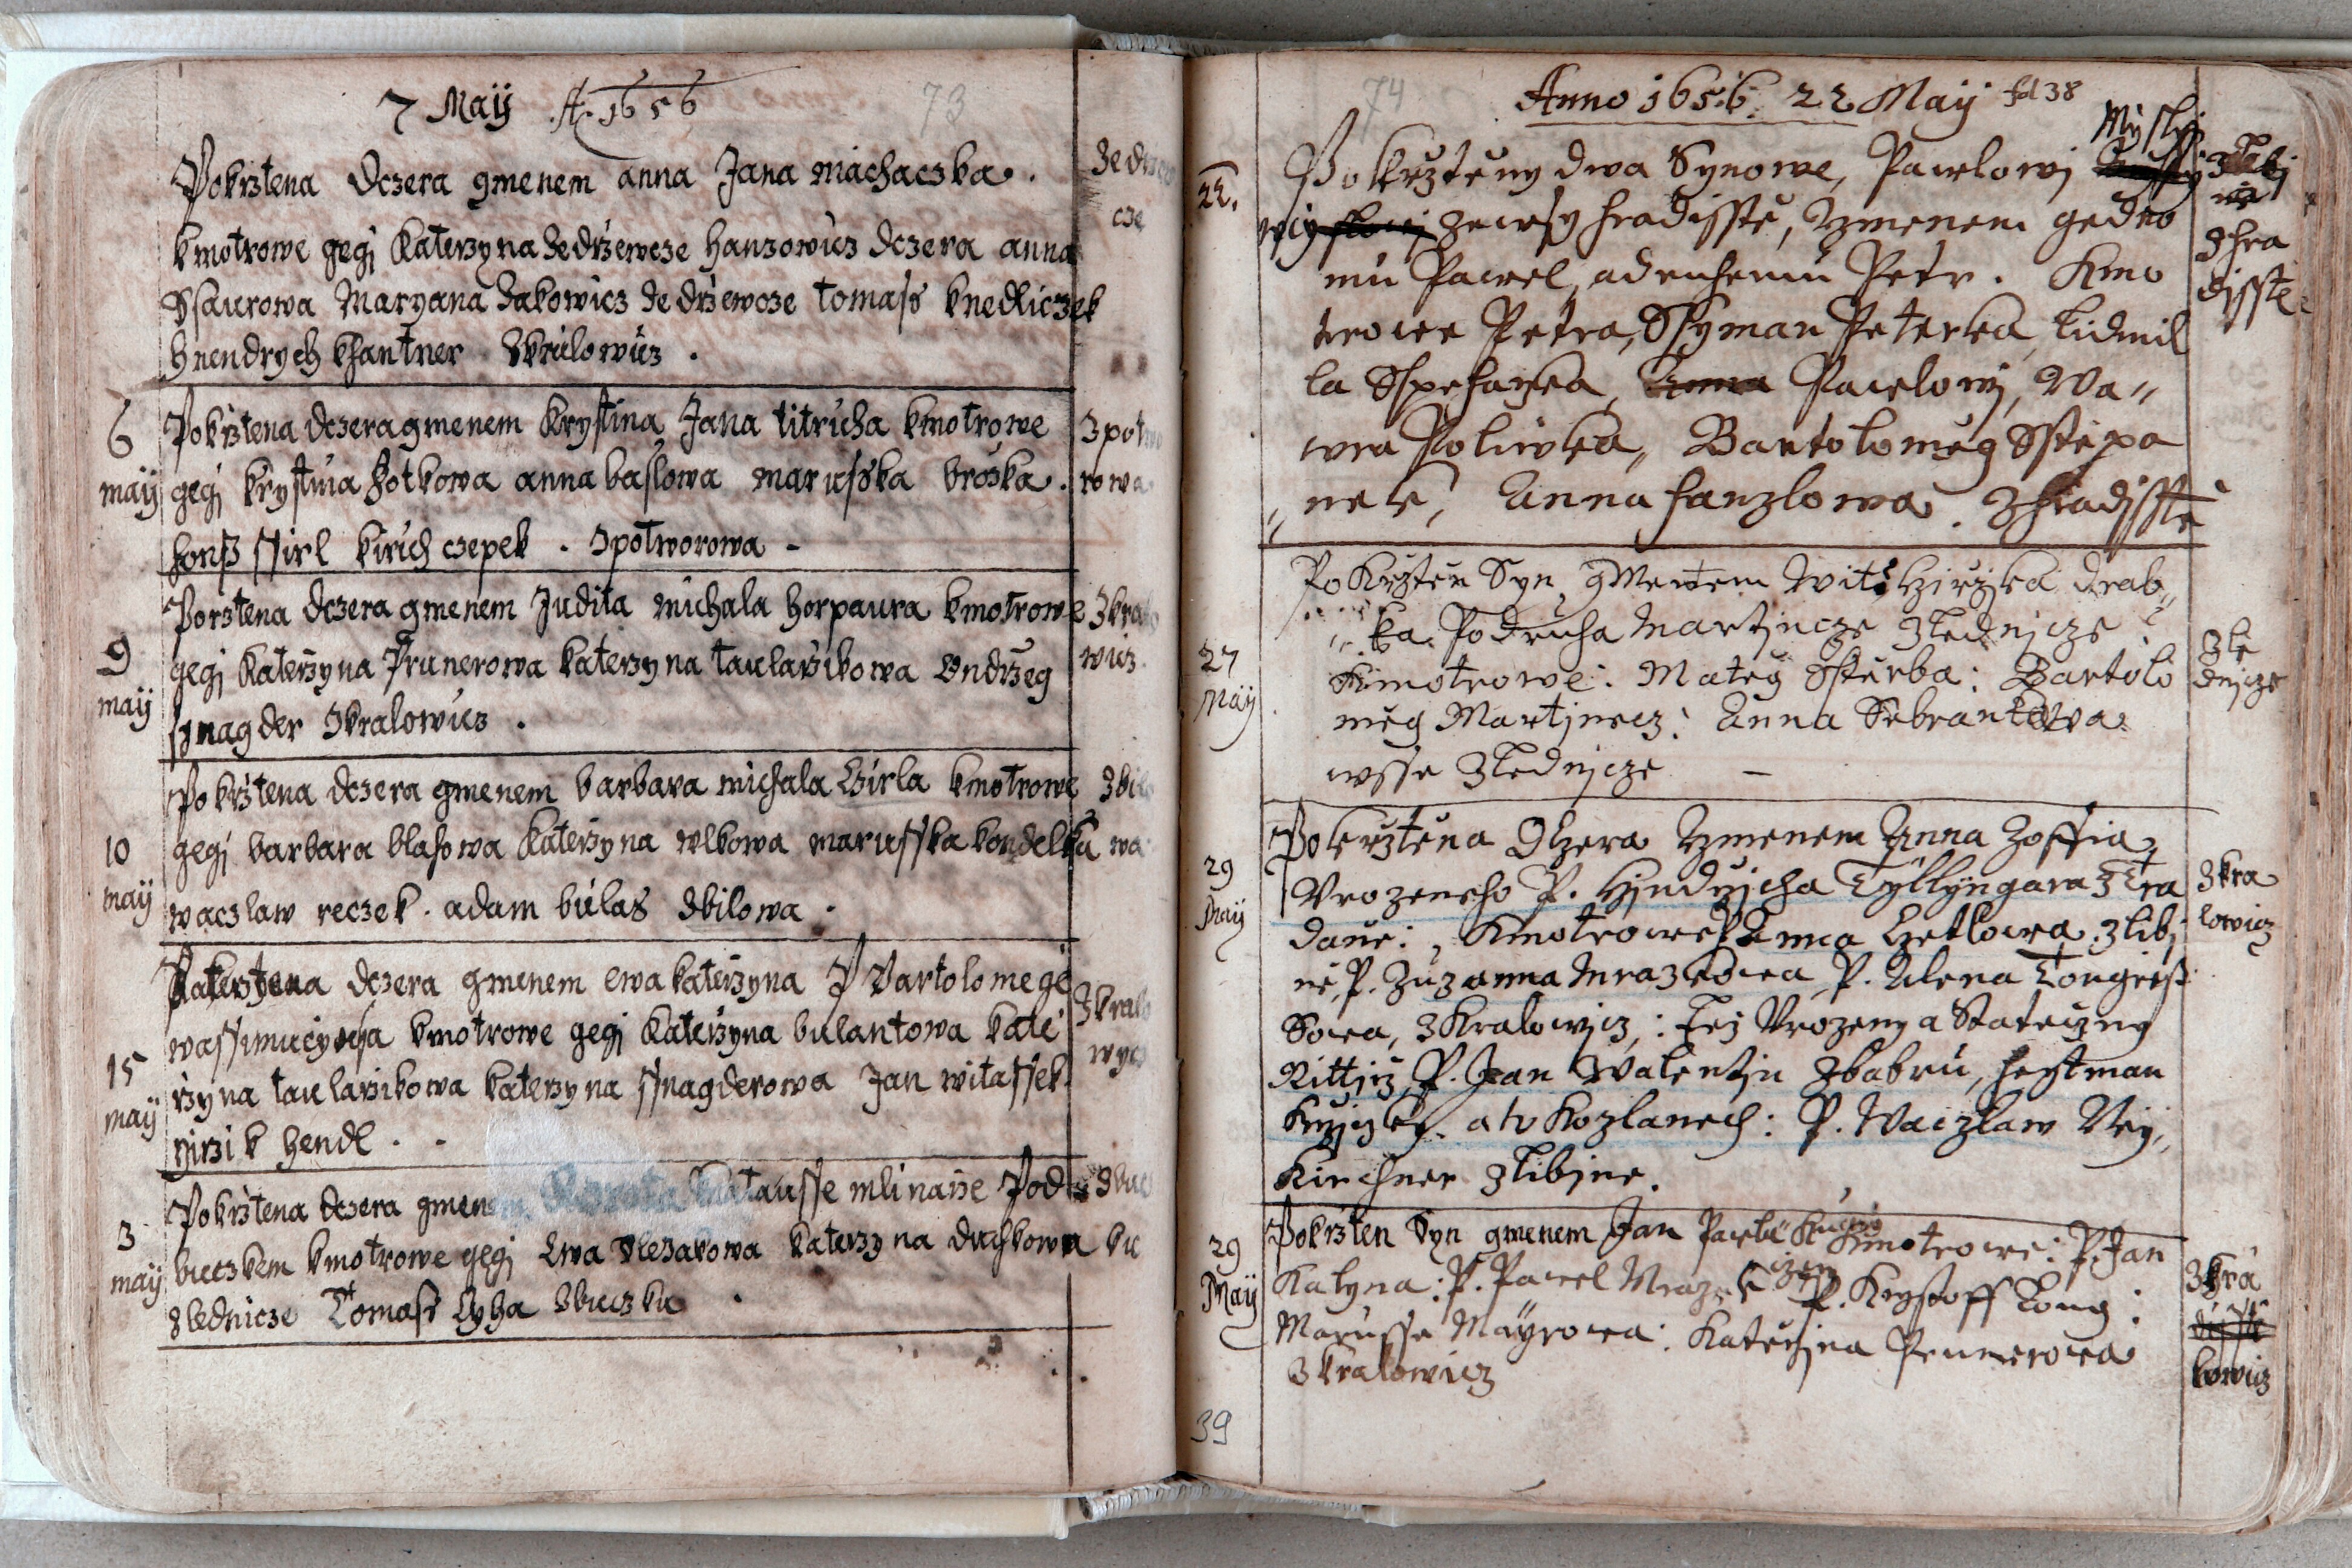 7 Maÿ A. 1656
73
Pokrztena dczera gmenem anna Jana machaczka.
kmotrowe gegi Katerzyna Zedrzewcze hanzowicz dczera anna
Ssaurowa Maryana Zakowicz Zedrzewcze tomass knedliczek
hnendrych khantner Zkralowicz.
Zedrzew
cze
6
maÿ
Pokrztena dczera gmenem Krystina Jana titricha kmotrowe
gegi krystina hotkowa anna baslowa marusska broska.
honss ssirl kirich czepek. Zpotworowa -
Zpotwo
rowa
9
maÿ
Porztena dczera gmenem Judita michala horpaura kmotrowe
gegi Katerzyna Prunerowa katerzyna taularzikowa Ondrzeg
ssnagder Zkralowicz.
Zkralo
wicz.
10
maÿ
Pokrztena dczera gmenem barbara michala Girla kmotrowe
gegi barbara blahowa Katerzyna wlkowa marusska kondelka
waczlaw reczek. adam bulas Zbilowa.
Zbilo
wa
15
maÿ
dczera gmenem ewa katerzyna P Bartolomege
kmotrowe gegi Katerzyna bulantowa kate
rzyna taularzikowa katerzyna ssnagderowa Jan witassek
girzik hendl.
Zkralo
wycz
3
maÿ
Pokrztena dczera gmenem mlinarze Pod
buczkem kmotrowe gegi Ewa Slezakowa katerzyna duchkowa
Zlednicze Tomass Cyha Zbuczku.
Zbucz
ku
74
Anno 1656. 22 Maÿ fol 38
22.
Pokrztěny dwa Synowe, Pawlowj Myslj
wcy zewsy hradisstě, Gmenem gedno
mu Pawel, a druhemu Petr. Kmo
trowe Petra, Ssyman Peterka, Lidmil
la Sspehanka, Pawlowj, Wa„
wra Poliwka, Bartoloměg Sstěpa
„nek, Anna hanzlowa. Zhradisstě
Zhra
disstě
27
Maÿ
Pokrztěn Syn, gmenem Wit Girzjka drab„
„ka. Podruha Martjncze Zlednjcze
Kmotrowe: Mateg Sstěrba: Bartolo
měg Martjnecz: Anna Sebrantowa
wsse Zlednjcze -
Zle
dnjcze
29
Maÿ
Pokrztěna Dczera Gmenem Anna Zoffia,
Vrozeneho P. Hjndrjcha Tÿllyngara Z Tra
daue:, Kmotrowe Anna Hetlowa. Zlibj
ně, P. Zuzanna Mrazkowa, P. Alena Tongress
Sowa, Z Kralowjcz,: Tez Vrozeny a Stateczny
Rittjrz, P. Jan Walentjn Zbabru, hegtman
Krzjczky. a w Kozlanech: P. Waczlaw Neÿ„
Kirchner Zlibjne.
Zkra
lowicz
29
Maÿ
Pokrzten Syn gmenem Jan Pawla Kmotrowe: P. Jan
Katyna: P. Pawel Mrazek P. Krystoff Tong:
Marusse Maÿrowa: Katerzina Prunerowa
Zkralowicz
Zkra
lowicz
39